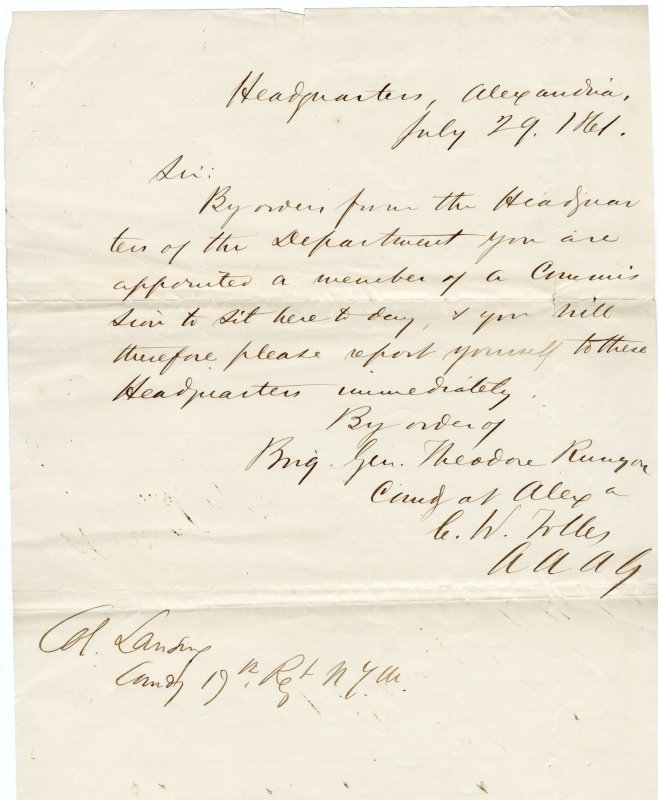 Headquarters, Alexandria,
July 29. 1861.
Sir:
By orders from the Headquar
ters of the Department you are
appointed a member of a Commis
sion to sit here to day, & you will
therefore please report yourself to these
Headquarters immediately.
By order of
Brig. Gen. Theodore Runyon
Comdg at Alexa
C. W. Tolles
A A A G
Col. Lansing
Comdg 17th Regt N. Y. M.